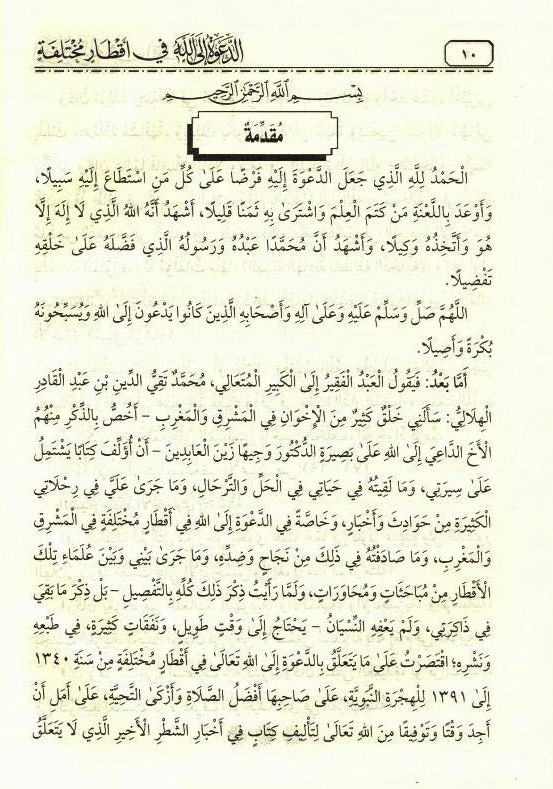 ١٠
الدَّعْوَةُ إِلَى اللهِ فِي أَقْطَارٍ مُخْتَلِفَةٍ
بِسْمِ اللَّهِ الرَّحْمَنِ الرَّحِيمِ
مُقَدِّمَةٌ
الْحَمْدُ لِلَّهِ الَّذِي جَعَلَ الدَّعْوَةَ إِلَيْهِ فَرْضًا عَلَى كُلِّ مَنِ اسْتَطَاعَ إِلَيْهِ سَبِيلًا،
وَأَوْعَدَ بِاللَّعْنَةِ مَنْ كَتَمَ الْعِلْمَ وَاشْتَرَىٰ بِهِ ثَمَنًا قَلِيلًا، أَشْهَدُ أَنَّهُ اللهُ الَّذِي لَا إِلَهَ إِلَّا
هُوَ وَأَتَّخِذُهُ وَكِيلًا، وَأَشْهَدُ أَنَّ مُحَمَّدًا عَبْدُهُ وَرَسُولُهُ الَّذِي فَضَّلَهُ عَلَىٰ خَلْقِهِ
تَفْضِيلًا.
اللَّهُمَّ صَلِّ وَسَلِّمْ عَلَيْهِ وَعَلَىٰ آلِهِ وَأَصْحَابِهِ الَّذِينَ كَانُوا يَدْعُونَ إِلَىٰ اللهِ وَيُسَبِّحُونَهُ
بُكْرَةً وَأَصِيلًا.
أَمَّا بَعْدُ: فَيَقُولُ الْعَبْدُ الْفَقِيرُ إِلَىٰ الْكَبِيرِ الْمُتَعَالِي، مُحَمَّدٌ تَقِيُّ الدِّينِ بْنِ عَبْدِ الْقَادِرِ
الْهِلَالِيُّ: سَأَلَنِي خَلْقٌ كَثِيرٌ مِنَ الْإِخْوَانِ فِي الْمَشْرِقِ وَالْمَغْرِبِ – أَخُصُّ بِالذِّكْرِ مِنْهُمُ
الْأَخَ الدَّاعِيَ إِلَىٰ اللهِ عَلَىٰ بَصِيرَةٍ الدُّكْتُورَ وَجِيهًا زَيْنَ الْعَابِدِينَ – أَنْ أُؤَلِّفَ كِتَابًا يَشْتَمِلُ
عَلَىٰ سِيرَتِي، وَمَا لَقِيتُهُ فِي حَيَاتِي فِي الْحَلِّ وَالتَّرْحَالِ، وَمَا جَرَىٰ عَلَيَّ فِي رِحْلَاتِي
الْكَثِيرَةِ مِنْ حَوَادِثَ وَأَخْبَارٍ، وَخَاصَّةً فِي الدَّعْوَةِ إِلَىٰ اللهِ فِي أَقْطَارٍ مُخْتَلِفَةٍ فِي الْمَشْرِقِ
وَالْمَغْرِبِ، وَمَا صَادَفْتُهُ فِي ذَلِكَ مِنْ نَجَاحٍ وَضِدِّهِ، وَمَا جَرَىٰ بَيْنِي وَبَيْنَ عُلَمَاءِ تِلْكَ
الْأَقْطَارِ مِنْ مُبَاحَثَاتٍ وَمُحَاوَرَاتٍ، وَلَمَّا رَأَيْتُ ذِكْرَ ذَلِكَ كُلِّهِ بِالتَّفْصِيلِ – بَلْ ذِكْرَ مَا بَقِيَ
فِي ذَاكِرَتِي، وَلَمْ يَعْفِهِ النِّسْيَانُ – يَحْتَاجُ إِلَىٰ وَقْتٍ طَوِيلٍ، وَنَفَقَاتٍ كَثِيرَةٍ، فِي طَبْعِهِ
وَنَشْرِهِ؛ اقْتَصَرْتُ عَلَىٰ مَا يَتَعَلَّقُ بِالدَّعْوَةِ إِلَىٰ اللهِ تَعَالَىٰ فِي أَقْطَارٍ مُخْتَلِفَةٍ مِنْ سَنَةِ ١٣٤٠
إِلَىٰ ١٣٩١ لِلْهِجْرَةِ النَّبَوِيَّةِ، عَلَىٰ صَاحِبِهَا أَفْضَلُ الصَّلَاةِ وَأَزْكَىٰ التَّحِيَّةِ، عَلَىٰ أَمَلِ أَنْ
أَجِدَ وَقْتًا وَتَوْفِيقًا مِنَ اللهِ تَعَالَىٰ لِتَأْلِيفِ كِتَابٍ فِي أَخْبَارِ الشَّطْرِ الْأَخِيرِ الَّذِي لَا يَتَعَلَّقُ